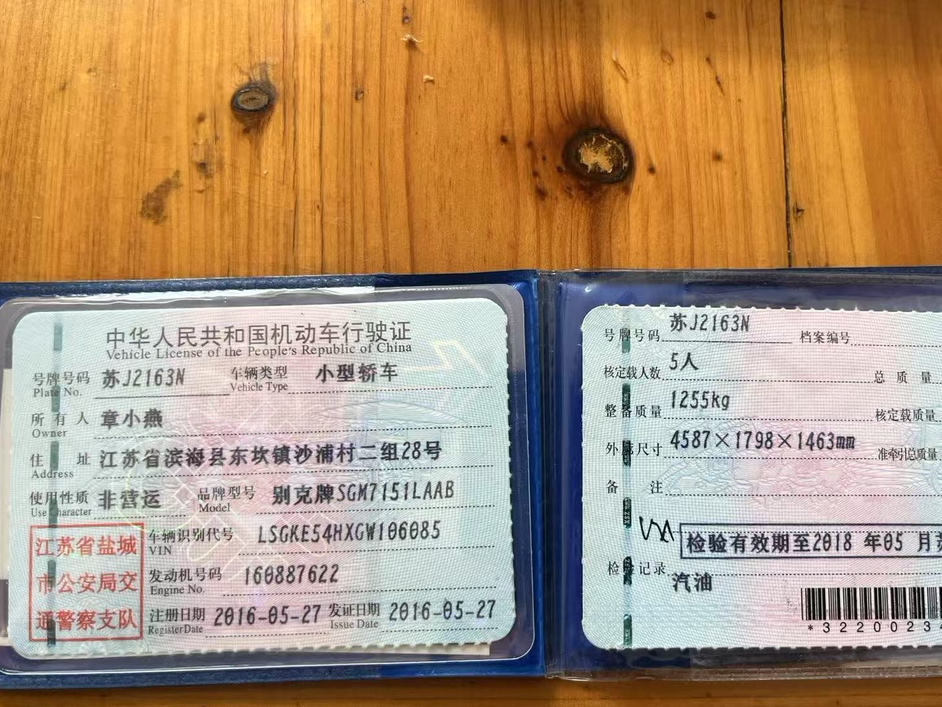 中华人民共和国机动车行驶证
Vehicle License of the People's Republic of China
号牌号码 苏J2163N 车辆类型 小型轿车
Plate No. Vehicle Type
所有人 章小燕
Owner
住址 江苏省滨海县东坎镇沙浦村二组28号
Address
使用性质 非营运 品牌型号 别克牌SGM7151LAAB
Use Character Model
江苏省盐城
市公安局交
通警察支队
车辆识别代号 LSGKE54HXGW106085
VIN
发动机号码 160887622
Engine No.
注册日期 2016-05-27 发证日期 2016-05-27
Register Date Issue Date
号牌号码 苏J2163N 档案编号
核定载人数 5人 总质量
整备质量 1255kg 核定载质量
外廓尺寸 4587×1798×1463mm 准牵引总质量
备注
检验有效期至2018 年05 月
检验记录
汽油
*32200234